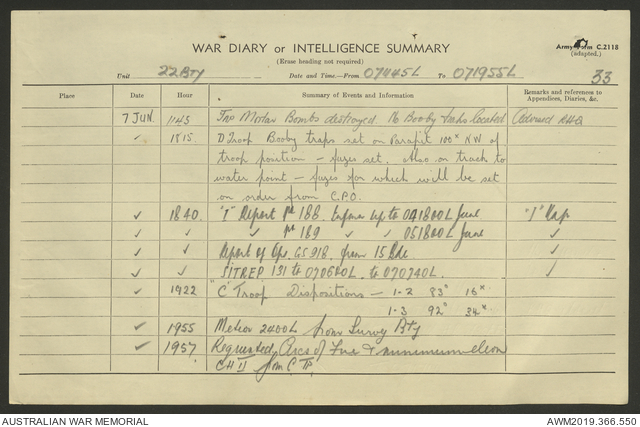 WAR DIARY or INTELLIGENCE SUMMARY
Army Form C.2118
(adapted.)
(Erase heading not required)
Unit 22 BTY Date and Time—From 07445L To 071955L 33
Place Date Hour Summary of Events and Information Remarks and references to Appendices, Diaries, &c.
7 JUN 1145 Two Mortar Bombs destroyed. 16 Booby located Advised RHQ
✓ 1815 D Troop Booby traps set on Parapet 100ˣ NW of
troop position – fuzes set. Also on track to
water point – fuzes for which will be set
on order from C.P.O.
✓ 1840. "I" Report Nº 188 up to 041800L June "I"
✓ ✓ ✓ Nº 189 ✓ ✓ 051800L June ✓
✓ ✓ Report of Ops. GS 918, from 15 Bde ✓
✓ ✓ SITREP 131 to 070600L. to 070740L. ✓
✓ 1922 "C" Troop Dispositions — 1-2 83° 16ˣ
1-3 92° 34ˣ
✓ 1955 Meteor 2400L from Survey Bty
✓ 1957 Requested Arcs of Fire & minimum elevn
from C Tp
AUSTRALIAN WAR MEMORIAL AWM2019.366.550